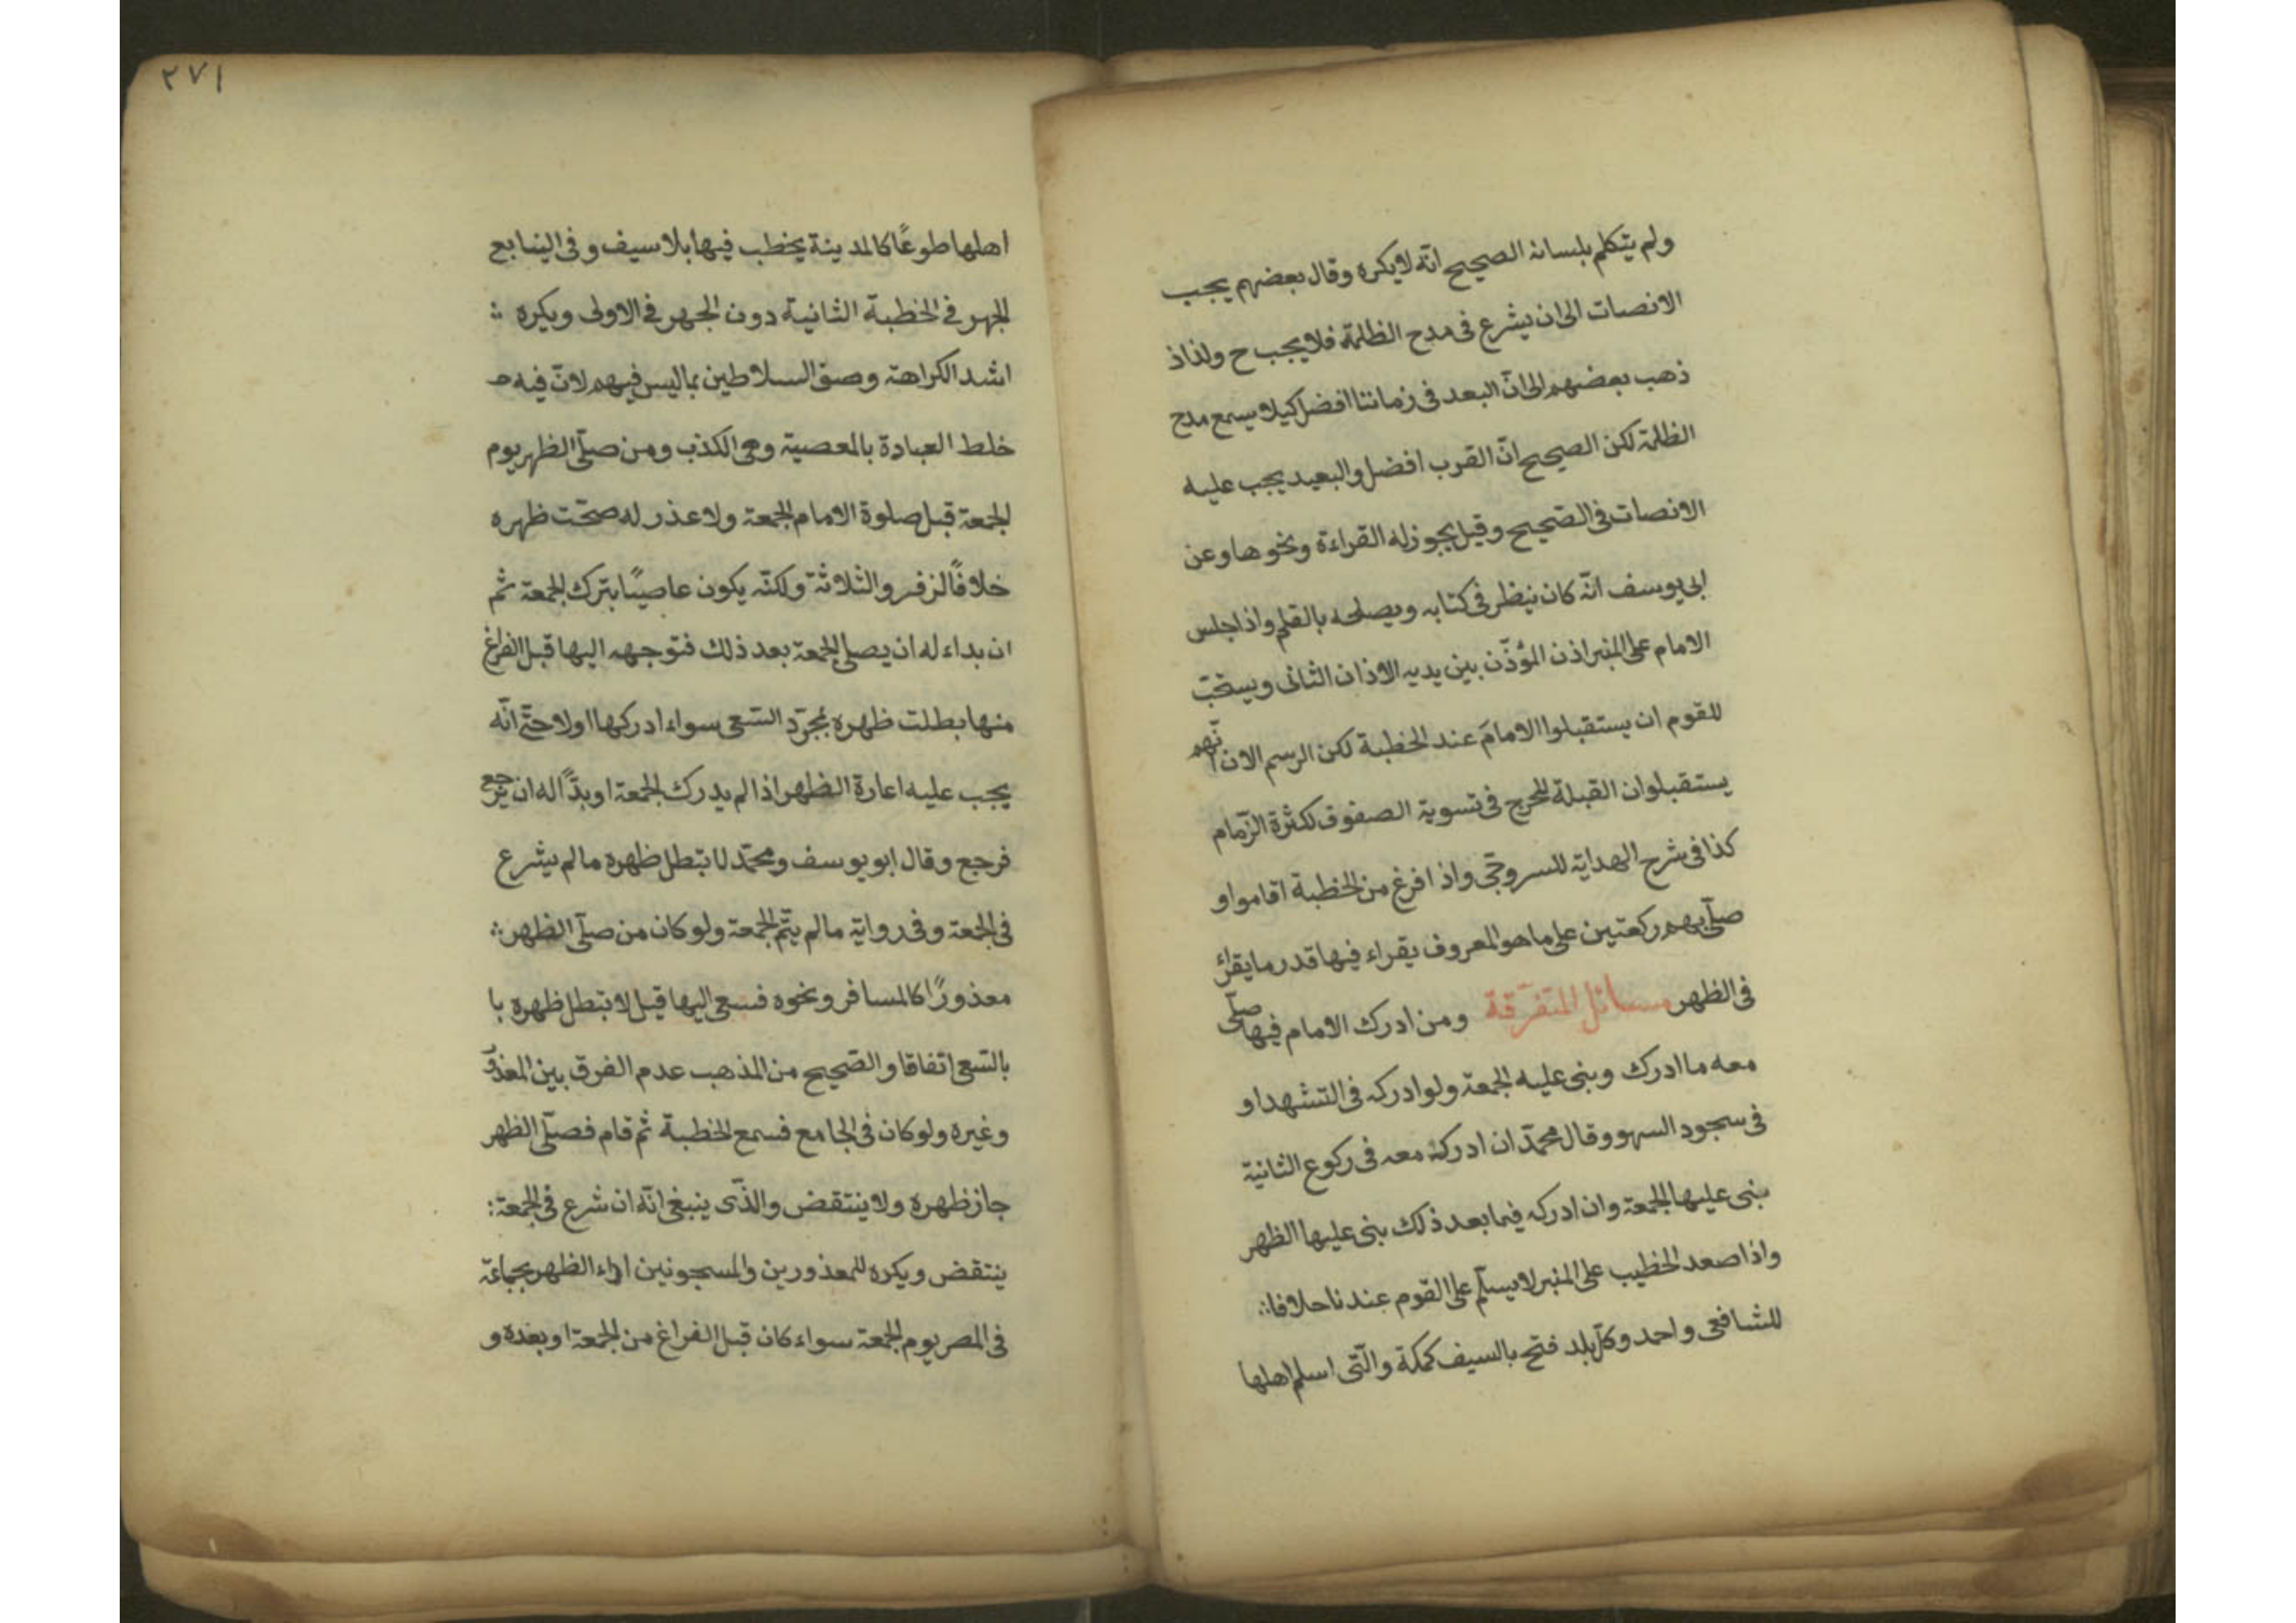 ولم يتكلم بلسانه الصحيح انّه لا يكره وقال بعضهم يجب
الانصات الى ان يشرع فى مدح الظلمة فلا يجب ح ولذاذ
ذهب بعضهم الى انّ البعد فى زماننا افضل كيلا يسمع مدح
الظلمة لكن الصحيح انّ القرب افضل والبعيد يجب عليه
الانصات فى الصّحيح وقيل يجوز له القراءة ونحوها وعن
ابى يوسف انّه كان ينظر فى كتابه ويصلحه بالقلم واذا جلس
الامام على المنبر اذن المؤذّن بين يديه الاذان الثانى ويستحبّ
للقوم ان يستقبلوا الامامَ عند الخطبة لكن الرسم الان انّهم
يستقبلوان القبلة للحرج فى تسوية الصفوف لكثرة الزّمام
كذا فى شرح الهداية للسروجّى واذا فرغ من الخطبة اقاموا و
صلّى بهم ركعتين على ما هو المعروف يقراء فيها قدر ما يقرائ
فى الظهر مسائل المتفرّقة ومن ادرك الامام فيها صلّى
معه ما ادرك وبنى عليه الجمعة ولو ادركه فى التشهد او
فى سجود السهو وقال محمّد ان ادركه معه فى ركوع الثانية
بنى عليها الجمعة وان ادركه فيما بعد ذلك بنى عليها الظهر
واذا صعد الخطيب على المنبر لا يسلّم على القوم عندنا حلافا ؞
للشافعى واحمد وكلّ بلد فتح بالسيف كمكة والّتى اسلم اهلها
٢٧١
اهلها طوعًا كالمدينة يخطب فيها بلا سيف وفى الينابع
الجهر فى الخطبة الثانية دون الجهر فى الاولى ويكره ؞
اشد الكراهة وصف السلاطين بما ليس فيهم لانّ فيه
خلط العبادة بالمعصية وهى الكذب ومن صلّى الظهر يوم
الجمعة قبل صلوة الامام الجمعة ولا عذر له صحّت ظهره
خلافًا لزفر والثلاثة ولكنّه يكون عاصيًا بترك الجمعة ثم
ان بداء له ان يصلى الجمعة بعد ذلك فتوجهه اليها قبل الفراغ
منها بطلت ظهره بمجرّد السّعى سواء ادركها اولا حتّى انّه
يجب عليه اعارة الظهر اذا لم يدرك الجمعة او بدًّا له ان يرجع
فرجع وقال ابو يوسف ومحمّد لا تبطل ظهره مالم يشرع
فى الجمعة وفى رواية مالم يتّم الجمعة ولو كان من صلّى الظهر ؞
معذورًا كالمسافر ونحوه فسعى اليها قيل لا تبطل ظهره با
بالسّعى اتفاقا والصّحيح من المذهب عدم الفرق بين المعذور
وغيره ولو كان فى الجامع فسمع الخطبة ثم قام فصلّى الظهر
جاز ظهره ولا ينتقض والذّى ينبغى انّه ان شرع فى الجمعة ؞
ينتقض ويكره للمعذورين والمسجونين اداء الظهر بجماعة
فى المصر يوم الجمعة سواء كان قبل الفراغ من الجمعة او بعده و